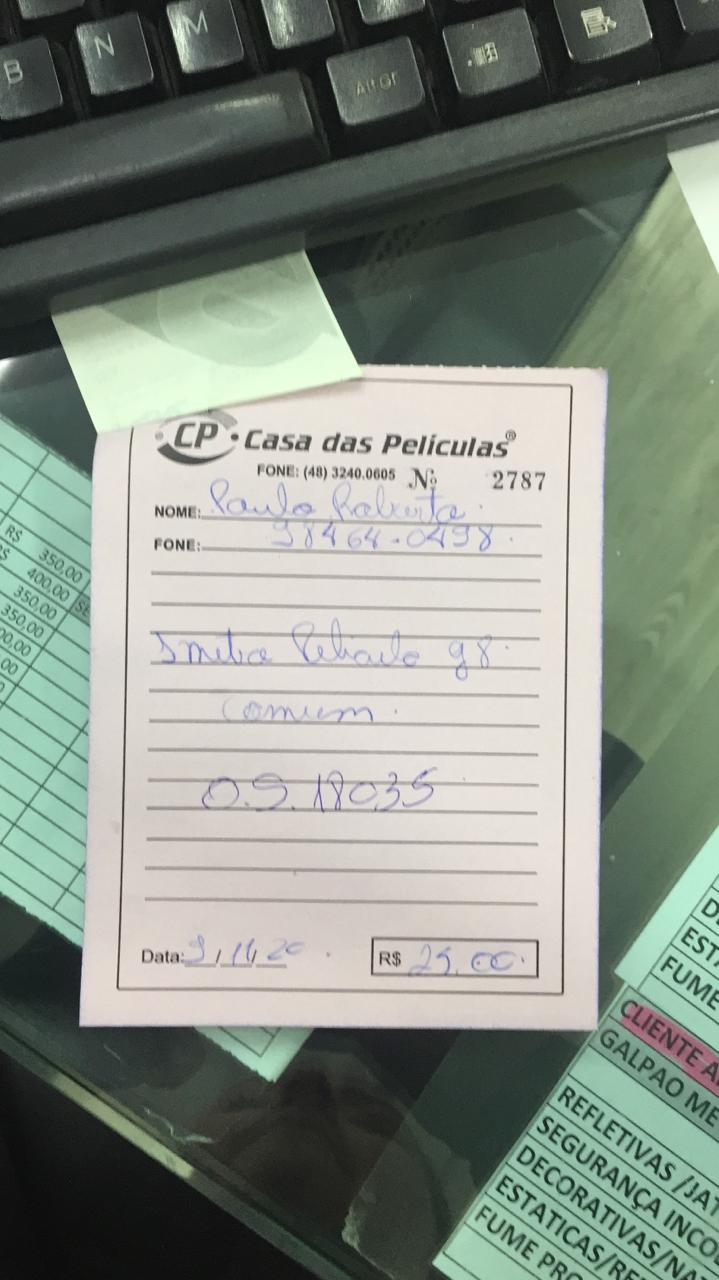 B N M
Alt Gr
CP Casa das Películas®
FONE: (48) 3240.0605 Nº 2787
NOME: Paulo Roberto
FONE: 98464-0498
R$ 350,00
R$ 400,00
350,00
350,00
00,00
,00
00
0
SE
1 metro g8
comum.
O.S. 18035
Data: 9/11/20 R$ 25,00
D
EST
FUME
CLIENTE A
GALPAO ME
REFLETIVAS /JAT
SEGURANÇA INCO
DECORATIVAS/NA
ESTATICAS/RE
FUME PRO